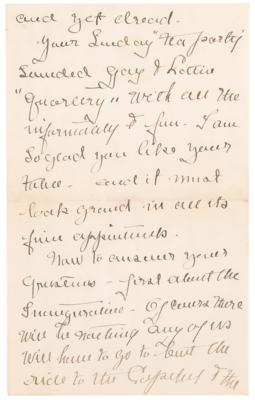 and yet dread.
Your Sunday "tea party"
Sounded Gay &
"Quaerity" with all the
informality & fun. I am
So glad you like your
table - and it must
look grand in all its
fine appointments.
Now to answer your
Questions - first about the
Inauguration - Of course there
will be nothing any of us
will have to go to - but the
ride to the Capitol & the